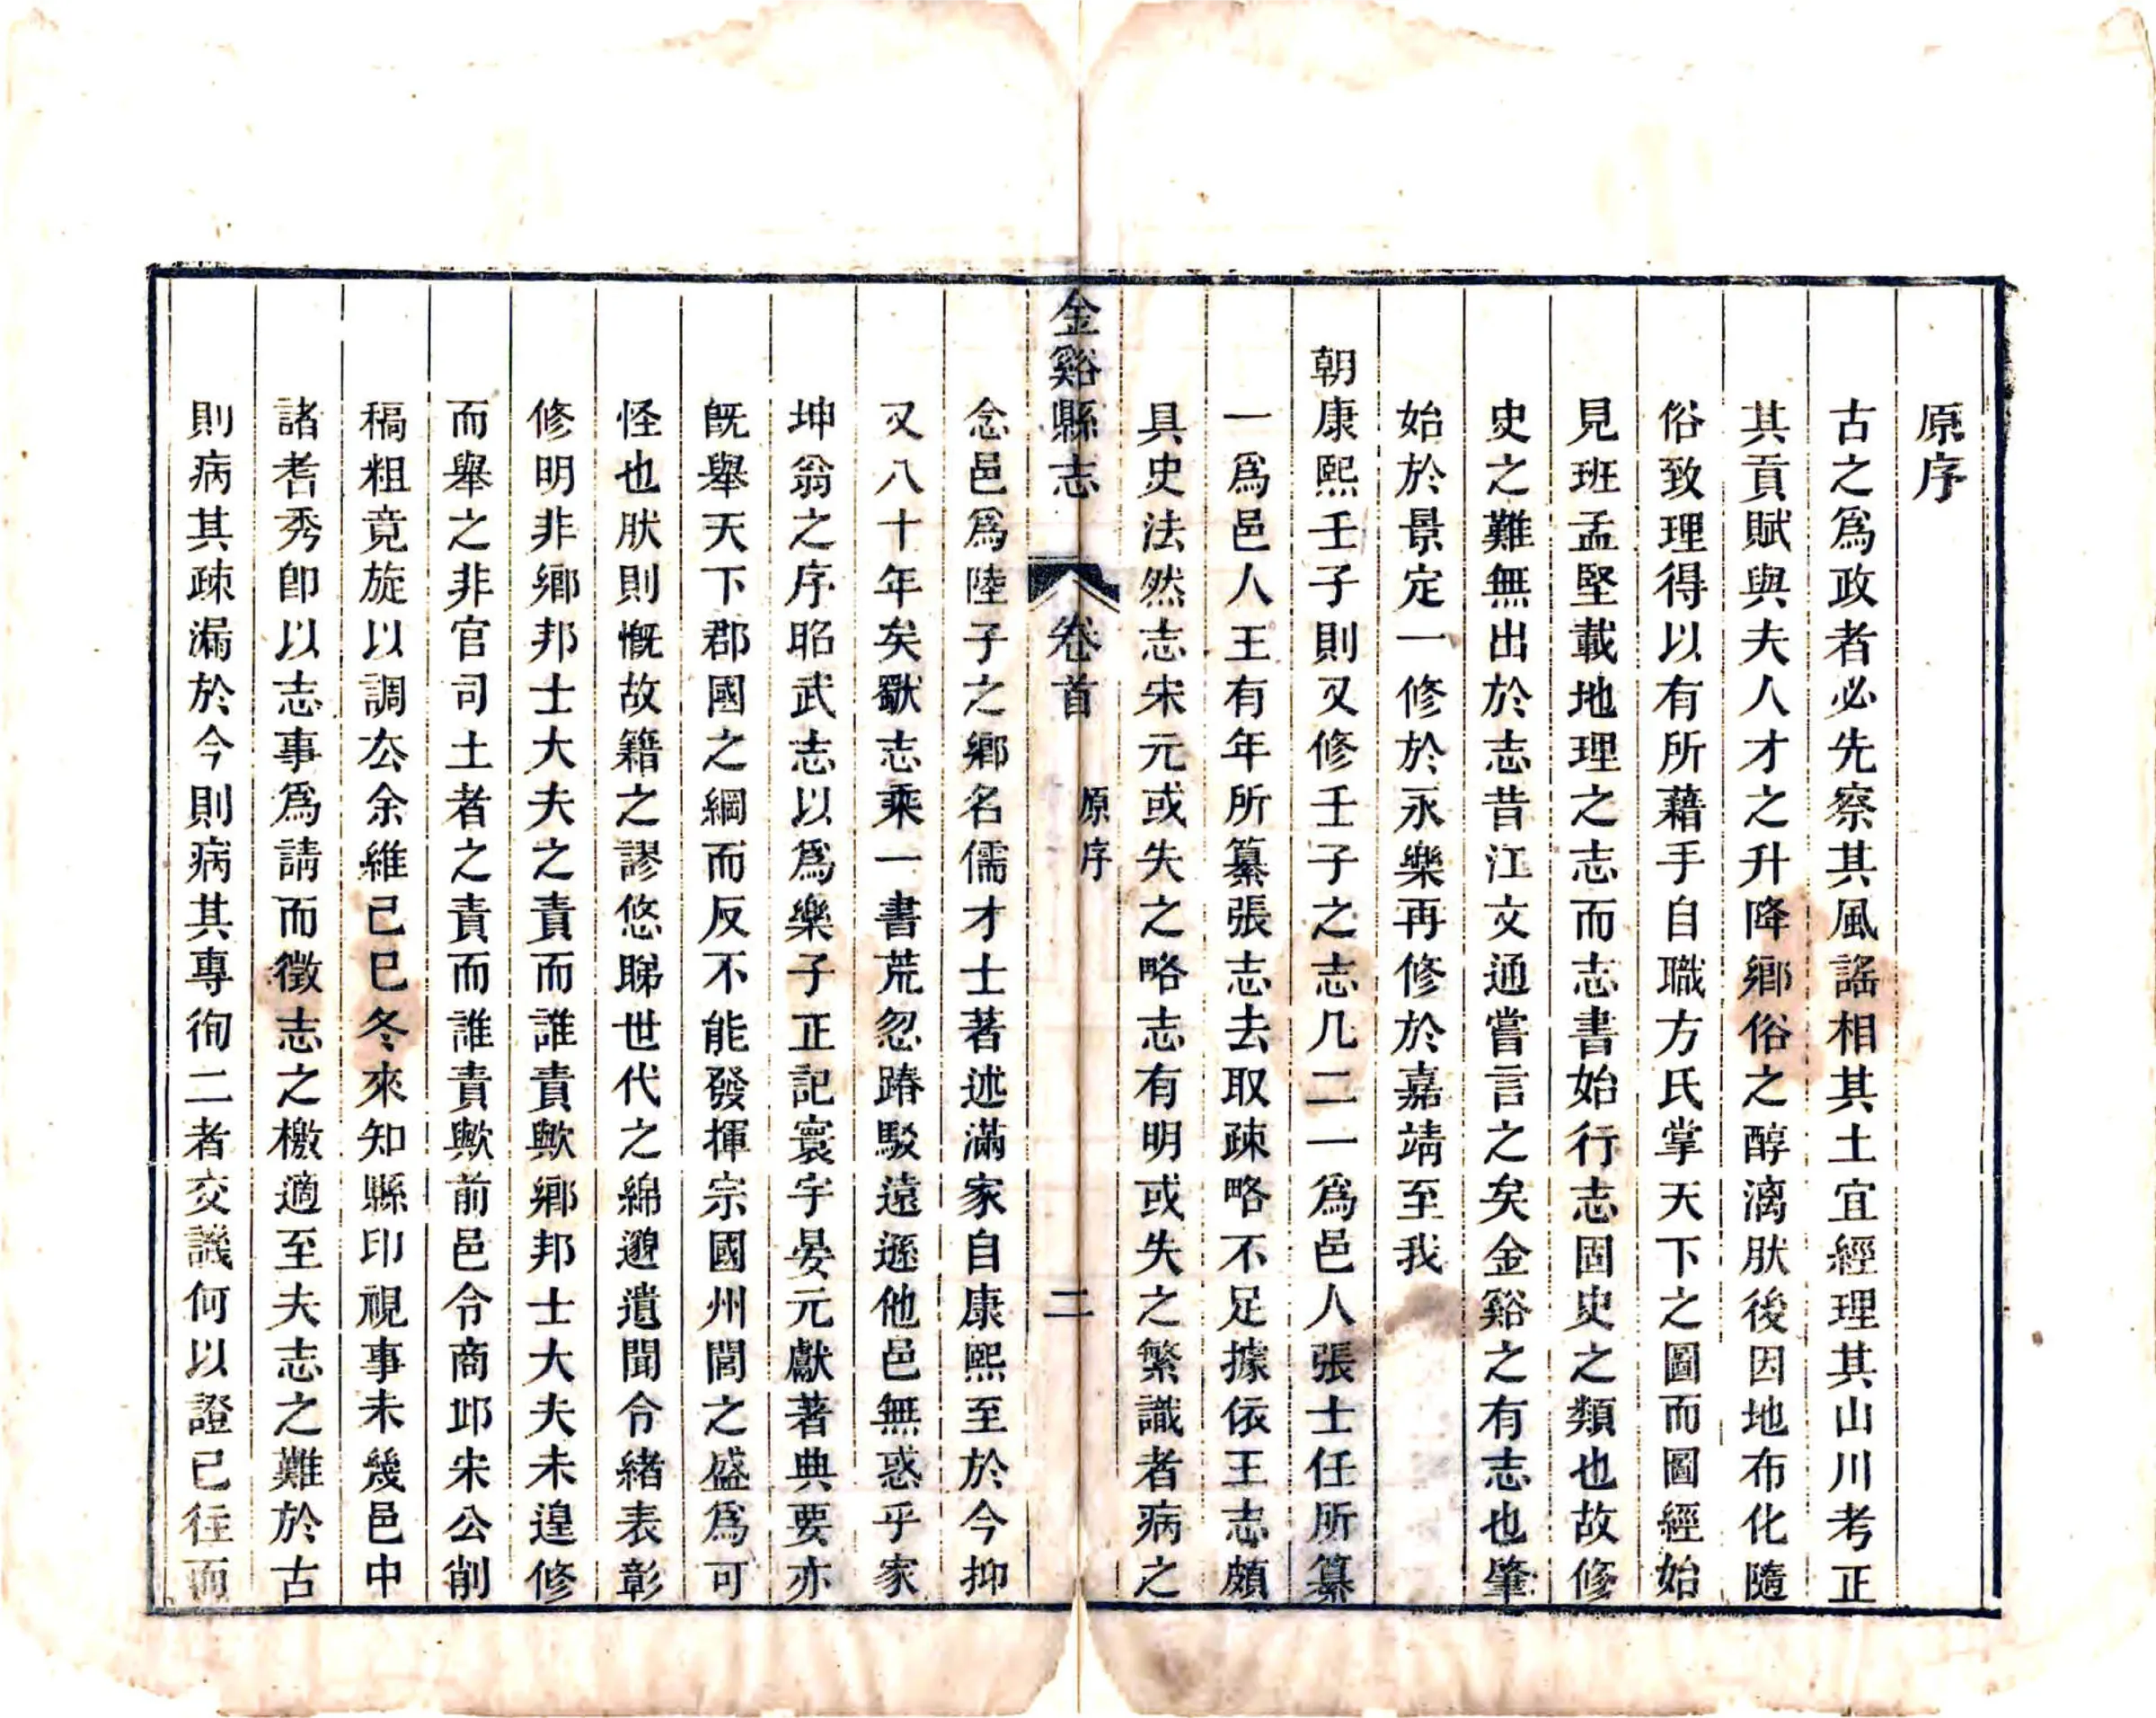 原序
古之爲政者必先察其風謠相其土宜經理其山川考正
其貢賦與夫人才之升降鄉俗之醇漓肰後因地布化隨
俗致理得以有所藉手自職方氏掌天下之圖而圖經始
見班孟堅載地理之志而志書始行志固史之類也故修
史之難無出於志昔江文通嘗言之矣金谿之有志也肇
始於景定一修於永樂再修於嘉靖至我
朝康熙壬子則又修壬子之志凡二一爲邑人張士任所纂
一爲邑人王有年所纂張志去取疎略不足據依王志頗
具史法然志宋元或失之略志有明或失之繁識者病之
金谿縣志 卷首 原序 二
念邑爲陸子之鄉名儒才士著述滿家自康熙至於今抑
又八十年矣歠志乘一書荒忽踳駁遠遜他邑無惑乎家
坤翁之序昭武志以爲樂子正記寰宇晏元獻著典要亦
旣舉天下郡國之綱而反不能發揮宗國州閭之盛爲可
怪也肰則慨故籍之謬悠睇世代之綿邈遺聞令緒表彰
修明非鄉邦士大夫之責而誰責歟鄉邦士大夫未遑修
而舉之非官司土者之責而誰責歟前邑令商邱宋公削
稿粗竟旋以調厺余維己巳冬來知縣印視事未幾邑中
諸耆秀卽以志事爲請而徵志之檄適至夫志之難於古
則病其疎漏於今則病其專徇二者交譏何以證已往而